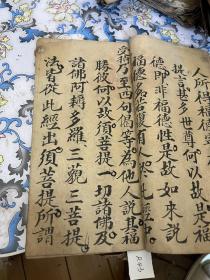 所得福德
提言甚多世尊何以故是福
德即非福德性是故如來說
福德多若復有人於此經中
受持乃至四句偈等為他人說其福
勝彼何以故須菩提一切諸佛及
諸佛阿耨多羅三藐三菩提
法皆從此經出須菩提所謂